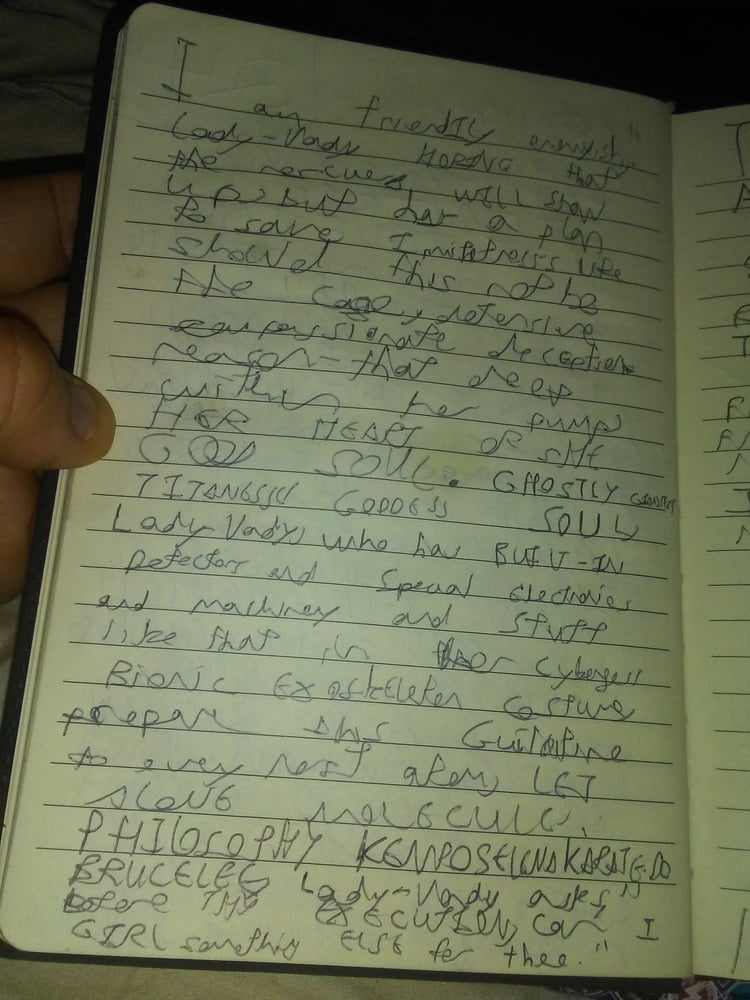 I
am friendly enemyish"
Lady-Vady HOPING that
the rescuers will show
up, but has a plan
to save I mistress's life
should this not be
the case, defensive
compassionate deception
reason - that deep
within her pump
HER HEART OF SHE
GOOD SOUL. GHOSTLY
TITANESS GODDESS SOUL
Lady-Vady, who has BUILT-IN
Detectors and Special Electronics
and machinery and stuff
like that in her Cyberess
BIONIC EXOSKELETON Costume
prepare this Guillotine
to every last atom, LET
ALONE MOLECULE.
PHILOSOPHY KARATE-DO
BRUCELEE Lady-Vady asks,"
Before THE EXECUTION, can I
GIRL something ELSE for thee."